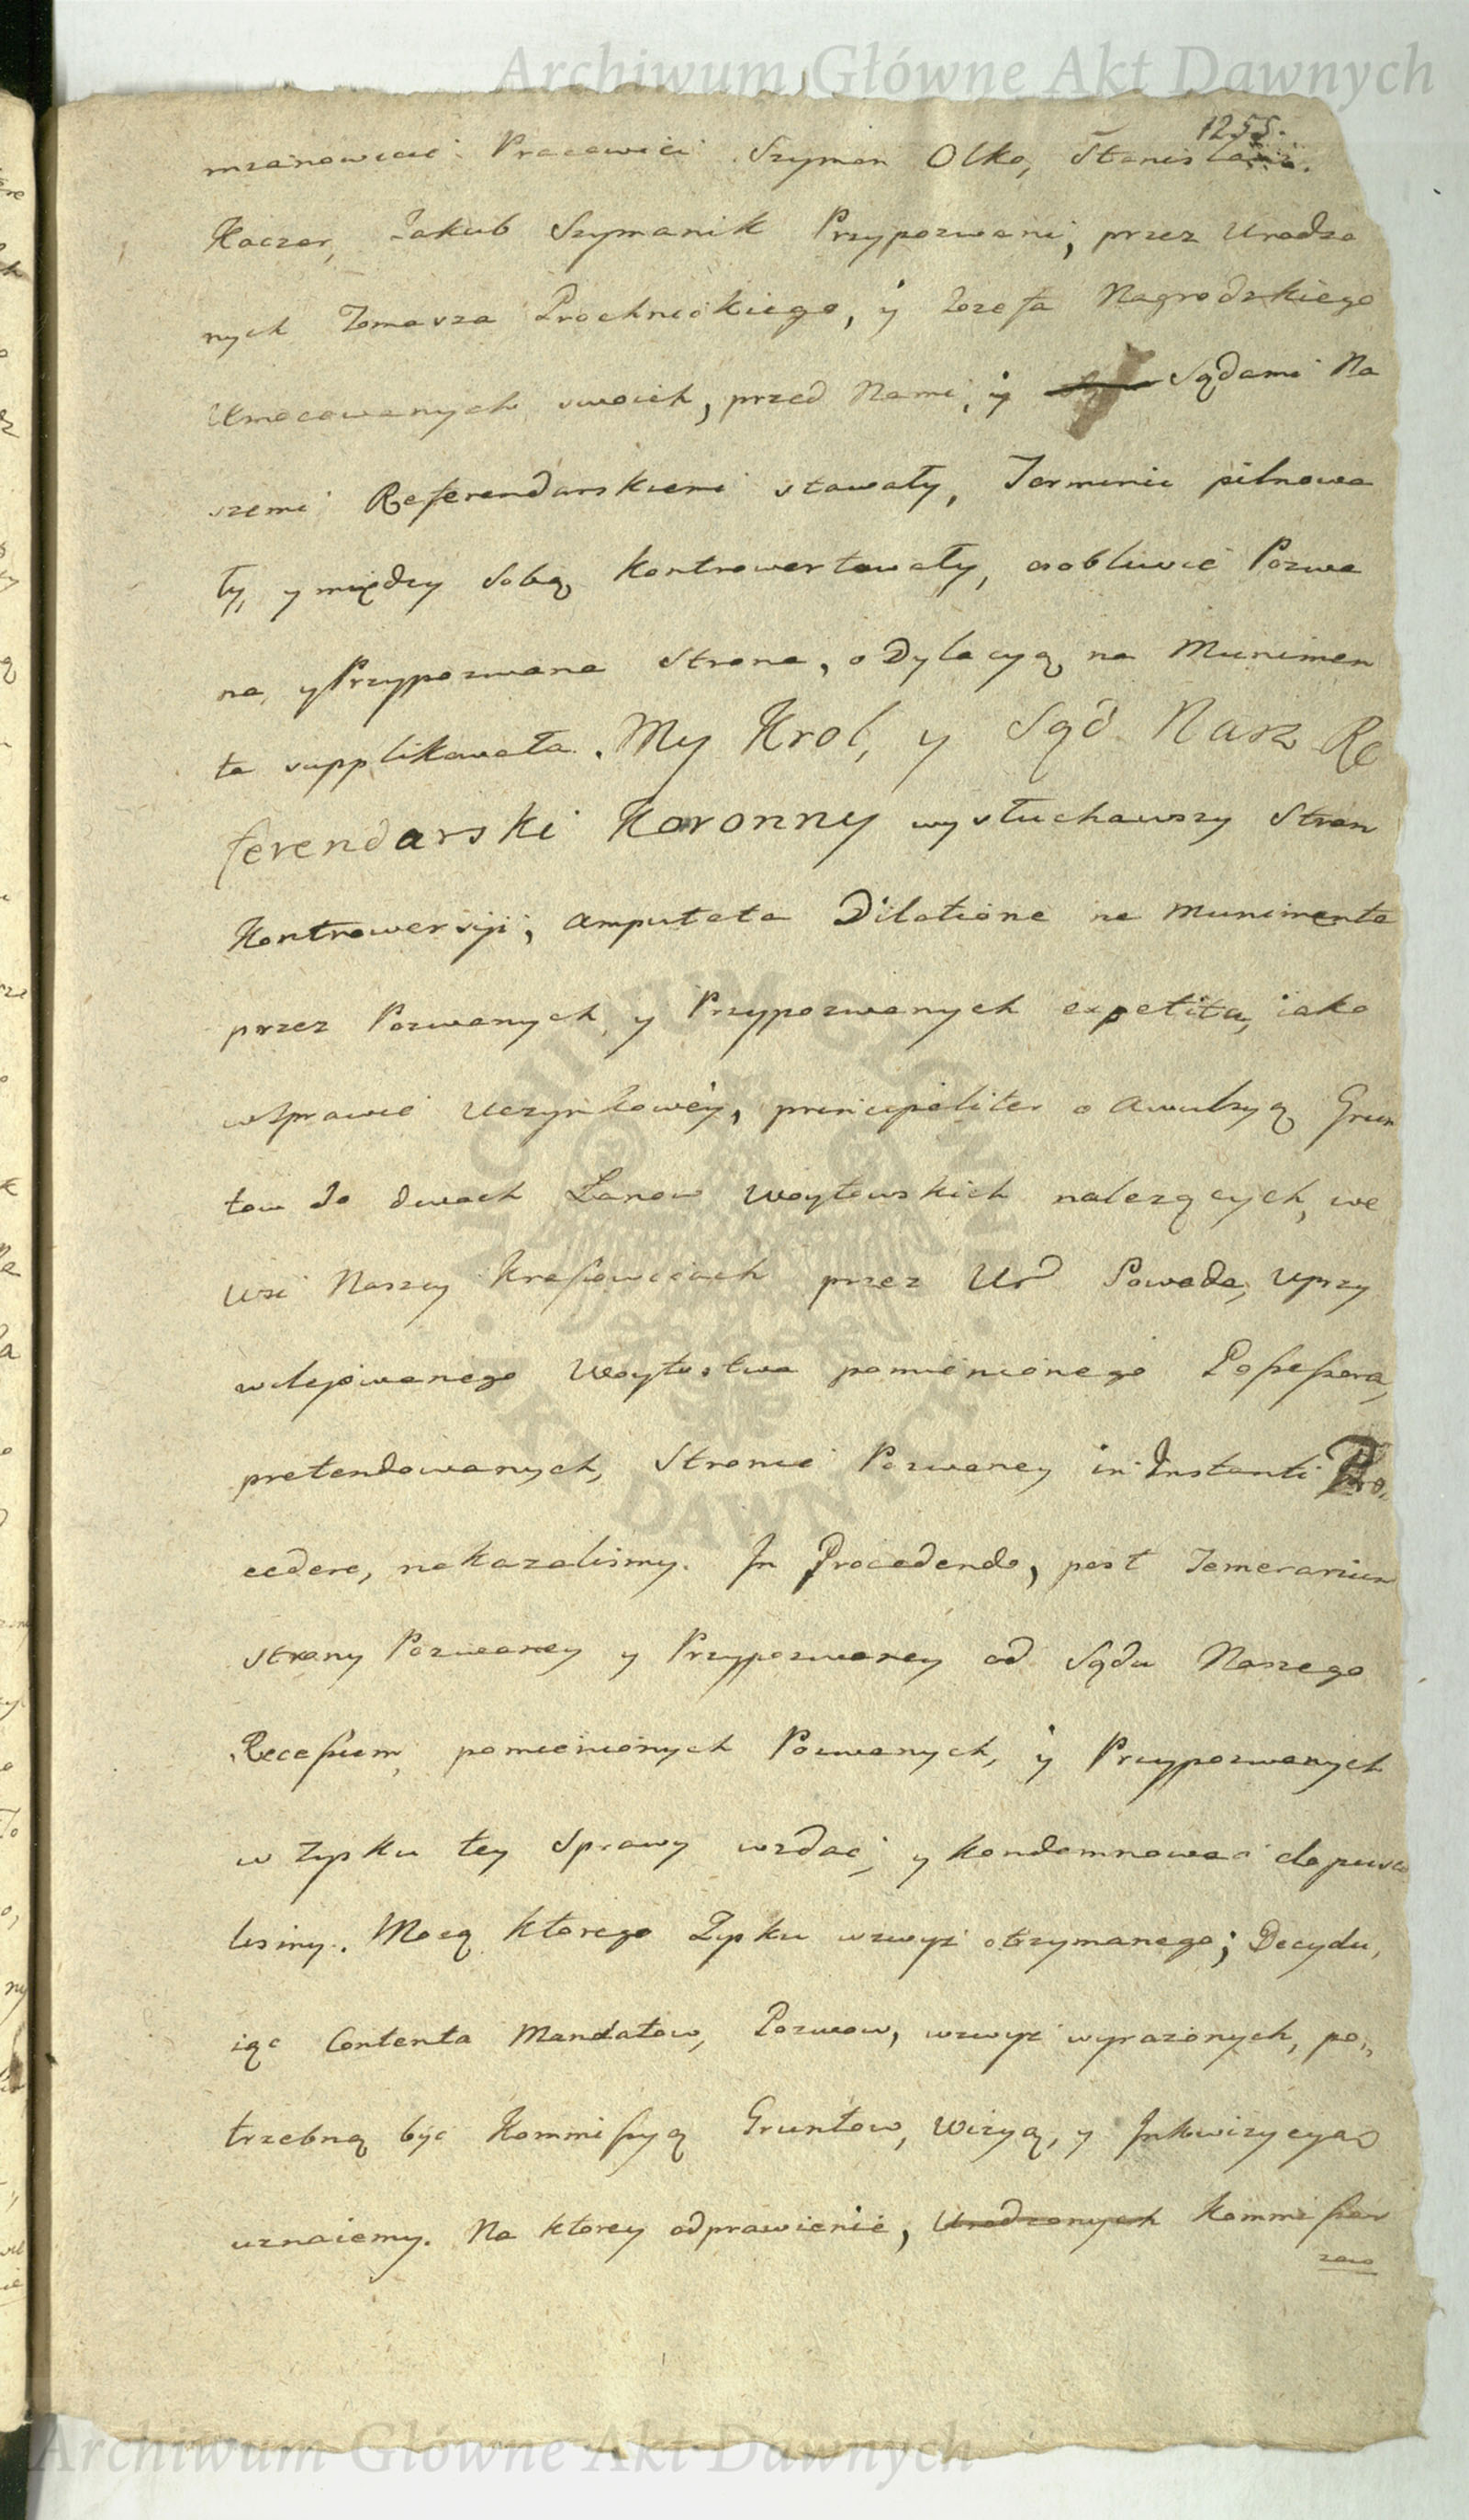 Archiwum Główne Akt Dawnych
1255.
mianowicie Pracowici Szymon Olko, Stanisław
Kaczor, Jakub Szymanik Przypozwani, przez Urodzo
nych Tomasza Prochnickiego, y Jozefa Nagrodzkiego
Umocowanych swoich, przed Nami, y Sądami Na
szemi Referendarskiemi stawały, Terminu pilnowa
ły, y między sobą kontrowertowały, osobliwie Pozwa
na, y Przypozwana Strona, o Dylacyą na Munimen
ta supplikowała. My Krol, y Sąd Nasz Re
ferendarski Koronny wysłuchawszy Stron
Kontrowersyi, amputata Dilatione na Munimenta
przez Pozwanych y Przypozwanych expetita, iako
w Sprawie Uczynkowey, principaliter o Awulsyą Grun
tow do dwoch Łanow Woytowskich nalezących, we
Wsi Naszey przez Ur Powoda, Uprzy
wilejowanego Woytostwa pomienionego Possessora,
pretendowanych, Stronie Pozwaney in Instanti Pro,
cedere, nakazalismy. In Procedendo, post Temerarium
strony Pozwaney y Przypozwaney od Sądu Naszego
Recessum, pomienionych Pozwanych, y Przypozwanych
w Zysku tey Sprawy wzdać, y kondemnować dopusci
lismy. Mocą ktorego Zysku wzwyż otrzymanego; Decydu,
iąc Contenta Mandatow, Pozwow, wzwyż wyrażonych, po,,
trzebną być Kommissyą Gruntow, Wizyą, y Inkwizycyą
uznaiemy. Na ktorey odprawienie, Urodzonych Kommissar
zow
ARCHIWUM GŁÓWNE • AKT DAWNYCH •
Archiwum Główne Akt Dawnych